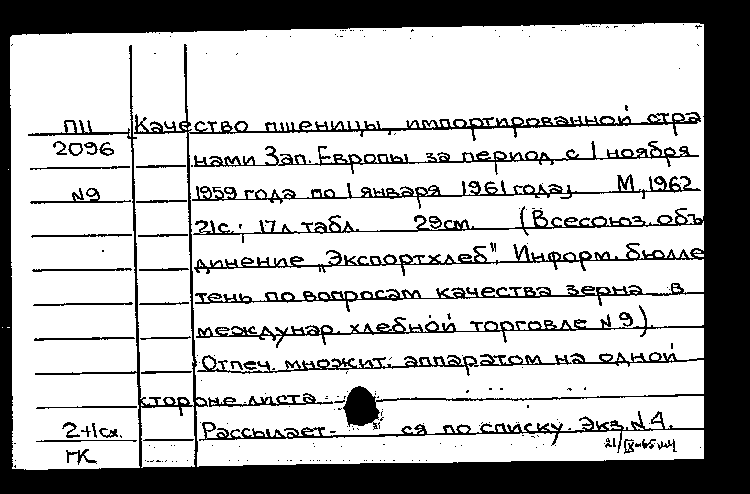 П11 Качество пшеницы, импортированной стра
2096 нами Зап. Европы за период с 1 ноября
№9 1959 года по 1 января 1961 года]. М, 1962
21с.; 17л. табл. 29см. (Всесоюз. объ
динение „Экспортхлеб". Информ. бюлле
тень по вопросам качества зерна в
междунар. хлебной торговле №9).
Отпеч. множит. аппаратом на одной
стороне листа
2+1сх. Рассылает- ся по списку. Экз. №4.
ГК 21/IX-65